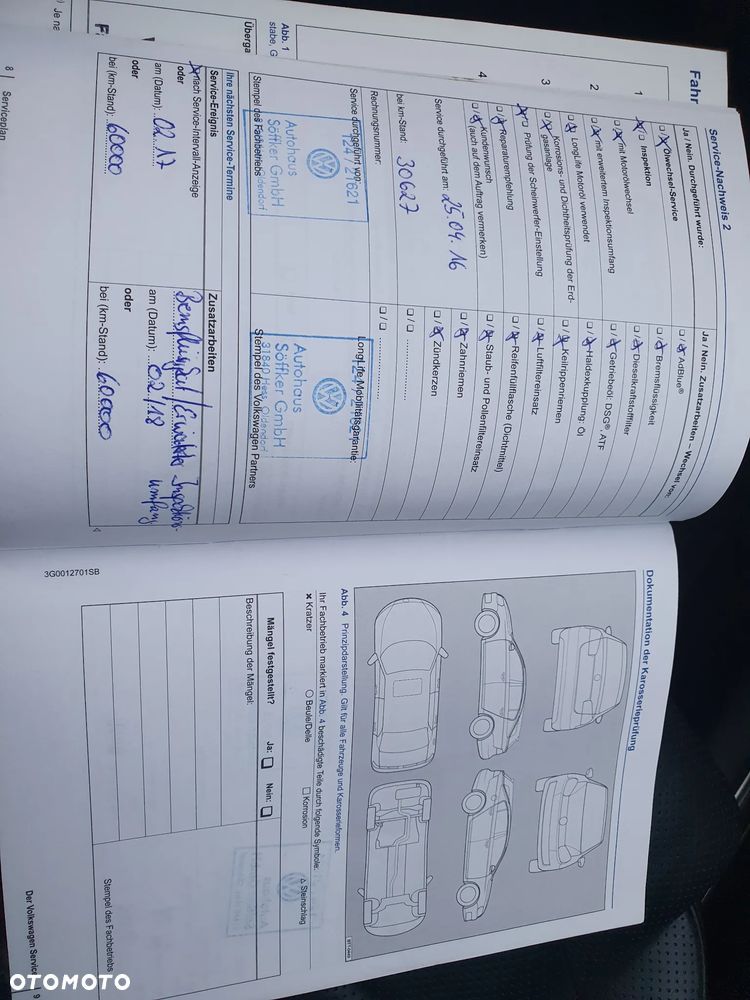 Service-Nachweis 2
Ja / Nein. Durchgeführt wurde:
❏ / ☒ Ölwechsel-Service
☒ / ❏ Inspektion
❏ / ☒ mit Motorölwechsel
❏ / ☒ mit erweitertem Inspektionsumfang
❏ / ☒ LongLife Motoröl verwendet
❏ / ☒ Korrosions- und Dichtheitsprüfung der Erd-
gasanlage
☒ / ❏ Prüfung der Scheinwerfer-Einstellung
❏ / ☒ Reparaturempfehlung
❏ / ☒ Kundenwunsch
(auch auf dem Auftrag vermerken)
Service durchgeführt am: 25.04.16
bei km-Stand: 30627
Rechnungsnummer:
Service durchgeführt von:
124/21621
Autohaus
Söffker GmbH
Stempel des Fachbetriebs
Ja / Nein. Zusatzarbeiten – Wechsel von:
❏ / ☒ AdBlue®
❏ / ☒ Bremsflüssigkeit
❏ / ☒ Dieselkraftstofffilter
❏ / ☒ Getriebeöl: DSG®, ATF
❏ / ☒ Haldexkupplung: Öl
❏ / ☒ Keilrippenriemen
❏ / ☒ Luftfiltereinsatz
❏ / ☒ Reifenfüllflasche (Dichtmittel)
❏ / ☒ Staub- und Pollenfiltereinsatz
❏ / ☒ Zahnriemen
❏ / ☒ Zündkerzen
❏ / ❏
❏ / ❏
LongLife Mobilitätsgarantie:
Autohaus
Söffker GmbH
Stempel des Volkswagen Partners
Ihre nächsten Service-Termine
Service-Ereignis
☒ nach Service-Intervall-Anzeige
oder
am (Datum): 02.17
oder
bei (km-Stand): 60000
Zusatzarbeiten
Bremsflüssigkeit/Erweiterter Inspektions-
umfang
am (Datum): 02/18
oder
bei (km-Stand): 60.000
8 | Serviceplan
Fahr
1
2
3
4
Abb. 1
stabe, G
Überga
Je na
Dokumentation der Karosserieprüfung
Abb. 4 Prinzipdarstellung. Gilt für alle Fahrzeuge und Karosserieformen.
Ihr Fachbetrieb markiert in Abb. 4 beschädigte Teile durch folgende Symbole:
✖ Kratzer ○ Beule/Delle □ Korrosion △ Steinschlag
Mängel festgestellt? Ja: ❏ Nein: ❏
Beschreibung der Mängel:
Stempel des Fachbetriebs
3G0012701SB
Der Volkswagen Service
9
OTOMOTO